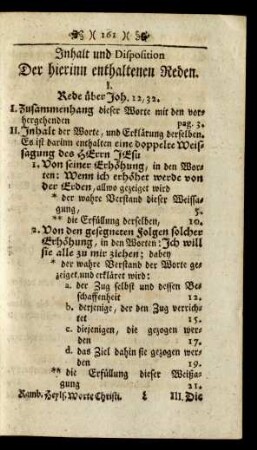 )( 161 )(
Inhalt und Disposition
Der hierinn enthaltenen Reden.
I.
Rede über Joh. 12, 32.
I. Zusammenhang dieser Worte mit den vor-
hergehenden pag. 3.
II. Inhalt der Worte, und Erklärung derselben.
Es ist darinn enthalten eine doppelte Weis-
sagung des HErrn JEsu
1. Von seiner Erhöhung, in den Wor-
ten: Wenn ich erhöhet werde von
der Erden, allwo gezeiget wird
* der wahre Verstand dieser Weissa-
gung, 5.
** die Erfüllung derselben, 10.
2. Von den gesegneten Folgen solcher
Erhöhung, in den Worten: Ich will
sie alle zu mir ziehen; dabey
* der wahre Verstand der Worte ge-
zeiget und erkläret wird:
a. der Zug selbst und dessen Be-
schaffenheit 12.
b. derjenige, der den Zug verrich-
tet 15.
c. diejenigen, die gezogen wer-
den 17.
d. das Ziel dahin sie gezogen wer-
den 19.
** die Erfüllung dieser Weißa-
gung 21.
Ramb. Heyls. Worte Christi. L III. Die